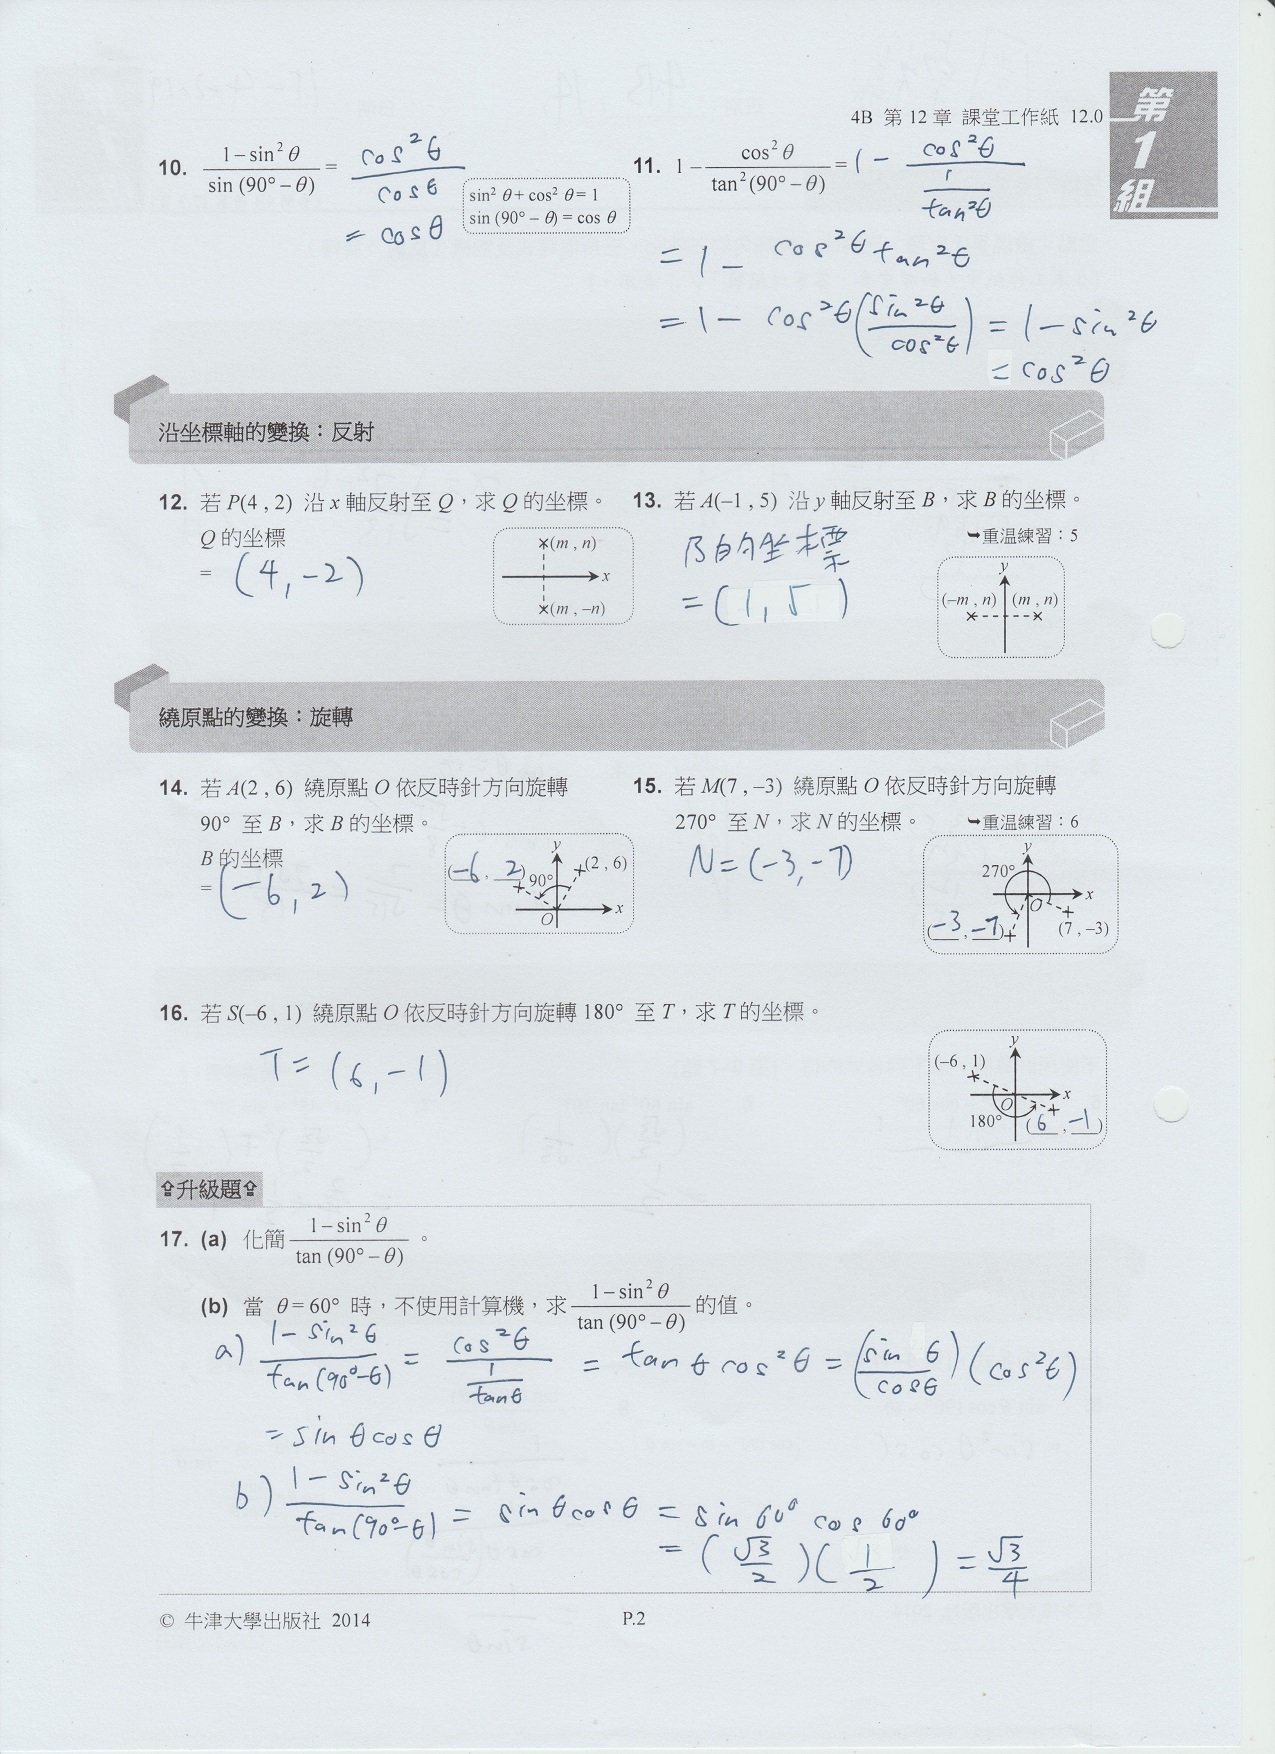 4B 第 12 章 課堂工作紙 12.0
第
1
組
10. \frac{1-sin²θ}{sin (90°−θ)} = \frac{cos²θ}{cosθ}
= cosθ
sin² θ + cos² θ = 1
sin (90° − θ) = cos θ
11. 1 − \frac{cos²θ}{tan²(90°−θ)} = 1 − \frac{cos²θ}{\frac{1}{tan²θ}}
= 1 − cos²θ tan²θ
= 1 − cos²θ(\frac{sin²θ}{cos²θ}) = 1 − sin²θ
= cos²θ
沿坐標軸的變換：反射
12. 若 P(4 , 2) 沿 x 軸反射至 Q，求 Q 的坐標。
Q 的坐標
= (4, −2)
(m , n)
x
(m , −n)
13. 若 A(−1 , 5) 沿 y 軸反射至 B，求 B 的坐標。
➥重温練習：5
B的坐標
= (1, 5)
y
(−m , n) (m , n)
繞原點的變換：旋轉
14. 若 A(2 , 6) 繞原點 O 依反時針方向旋轉
90° 至 B，求 B 的坐標。
B 的坐標
= (−6, 2)
y
(−6 , 2) (2 , 6)
90°
O x
15. 若 M(7 , −3) 繞原點 O 依反時針方向旋轉
270° 至 N，求 N 的坐標。 ➥重温練習：6
N = (−3, −7)
y
270°
x
O
(−3 , −7) (7 , −3)
16. 若 S(−6 , 1) 繞原點 O 依反時針方向旋轉 180° 至 T，求 T 的坐標。
T = (6, −1)
y
(−6 , 1)
x
O
180° (6 , −1)
⇪升級題⇪
17. (a) 化簡 \frac{1−sin²θ}{tan (90°−θ)} 。
(b) 當 θ = 60° 時，不使用計算機，求 \frac{1−sin²θ}{tan (90°−θ)} 的值。
a) \frac{1−sin²θ}{tan(90°−θ)} = \frac{cos²θ}{\frac{1}{tanθ}} = tanθ cos²θ = (\frac{sinθ}{cosθ})(cos²θ)
= sinθcosθ
b) \frac{1−sin²θ}{tan(90°−θ)} = sinθcosθ = sin 60° cos 60°
= (\frac{√3}{2})(\frac{1}{2}) = \frac{√3}{4}
© 牛津大學出版社 2014
P.2